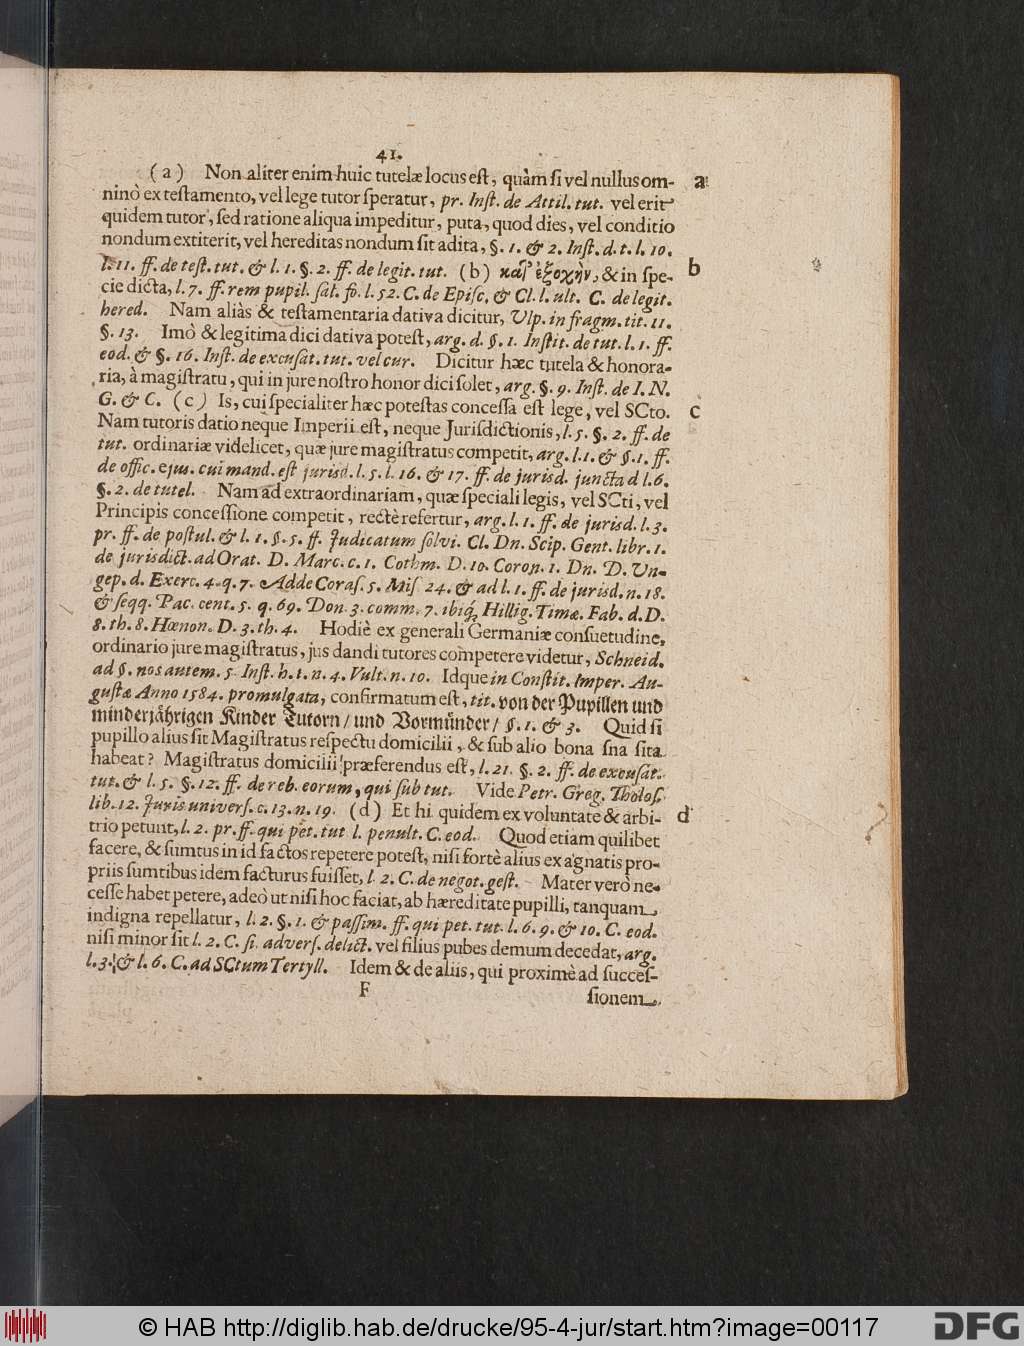 41.
(a) Non aliter enim huic tutelæ locus est, quàm si vel nullus om- a
ninò ex testamento, vel lege tutor speratur, pr. Inst. de Attil. tut. vel erit
quidem tutor, sed ratione aliqua impeditur, puta, quod dies, vel conditio
nondum extiterit, vel hereditas nondum sit adita, §. 1. & 2. Inst. d. t. l. 10.
l. 11. ff. de test. tut. & l. 1. §. 2. ff. de legit. tut. (b) κατ' ἐξοχὴν, & in spe- b
cie dicta, l. 7. ff. rem pupil. sal. fo. l. 52. C. de Episc. & Cl. l. ult. C. de legit.
hered. Nam aliàs & testamentaria dativa dicitur, Ulp. in fragm. tit. 11.
§. 13. Imò & legitima dici dativa potest, arg. d. §. 1. Instit. de tut. l. 1. ff.
eod. & §. 16. Inst. de excusat. tut. vel cur. Dicitur hæc tutela & honora-
ria, à magistratu, qui in jure nostro honor dici solet, arg. §. 9. Inst. de I. N.
G. & C. (c) Is, cui specialiter hæc potestas concessa est lege, vel SCto. c
Nam tutoris datio neque Imperii est, neque Jurisdictionis, l. 5. §. 2. ff. de
tut. ordinariæ videlicet, quæ jure magistratus competit, arg. l. 1. & §. 1. ff.
de offic. ejus. cui mand. est jurisd. l. 5. l. 16. & 17. ff. de jurisd. juncta d l. 6.
§. 2. de tutel. Nam ad extraordinariam, quæ speciali legis, vel SCti, vel
Principis concessione competit, rectè refertur, arg. l. 1. ff. de jurisd. l. 3.
pr. ff. de postul. & l. 1. §. 5. ff. Judicatum solvi. Cl. Dn. Scip. Gent. libr. 1.
de jurisdict. ad Orat. D. Marc. c. 1. Cothm. D. 10. Coron. 1. Dn. D. Un-
gep. d. Exerc. 4. q. 7. Adde Coras. 5. Mis 24. & ad l. 1. ff. de jurisd. n. 18.
& seqq. Pac. cent. 5. q. 69. Don. 3. comm. 7. ibiq; Hillig. Timæ. Fab. d. D.
8. th. 8. Hœnon. D. 3. th. 4. Hodiè ex generali Germaniæ consuetudine,
ordinario jure magistratus, jus dandi tutores competere videtur, Schneid.
ad §. nos autem. 5 Inst. h. t. n. 4. Vult. n. 10. Idque in Constit. Imper. Au-
gustæ Anno 1584. promulgata, confirmatum est, tit. von der Pupillen und
minderjährigen Kinder Tutorn / und Vormünder / §. 1. & 3. Quid si
pupillo alius sit Magistratus respectu domicilii, & sub alio bona sna sita
habeat? Magistratus domicilii præferendus est, l. 21. §. 2. ff. de excusat.
tut. & l. 5. §. 12. ff. de reb. eorum, qui sub tut. Vide Petr. Greg. Tholos.
lib. 12. Juris univers. c. 13. n. 19. (d) Et hi quidem ex voluntate & arbi- d
trio petunt, l. 2. pr. ff. qui pet. tut l. penult. C. eod. Quod etiam quilibet
facere, & sumtus in id factos repetere potest, nisi fortè alius ex agnatis pro-
priis sumtibus idem facturus fuisset, l 2. C. de negot. gest. Mater verò ne-
cesse habet petere, adeò ut nisi hoc faciat, ab hæreditate pupilli, tanquam
indigna repellatur, l. 2. §. 1. & passim. ff. qui pet. tut. l. 6. 9. & 10. C. eod.
nisi minor sit l. 2. C. si advers. delict. vel filius pubes demum decedat, arg.
l. 3. & l. 6. C. ad SCtum Tertyll. Idem & de aliis, qui proximè ad succes-
F sionem
© HAB http://diglib.hab.de/drucke/95-4-jur/start.htm?image=00117 DFG